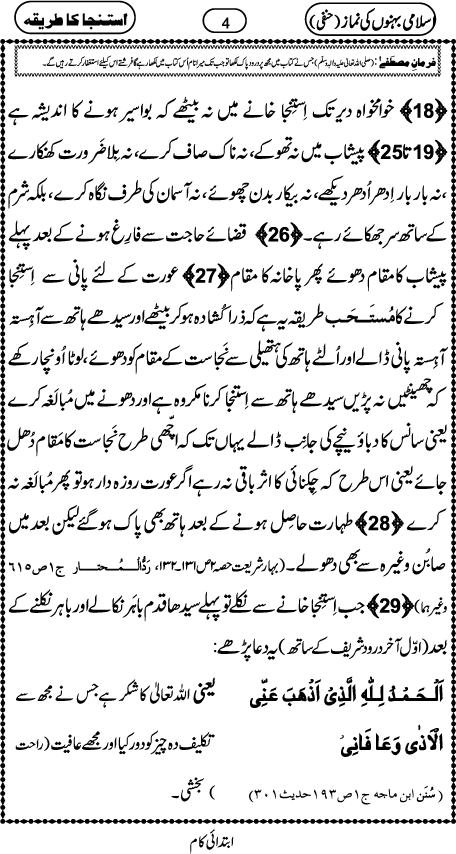 سلامی بہنوں کی نماز (حنفی)
4
استنجا کا طریقہ
فرمانِ مصطفےٰ: (صلی اللہ تعالیٰ علیہ واٰلہٖ وسلم) جس نے کتاب میں مجھ پر درود پاک لکھا تو جب تک میرا نام اُس کتاب میں لکھا رہے گا فرشتے اس کیلئے استغفار کرتے رہیں گے۔
﴿18﴾ خوامخواہ دیر تک اِستِنجا خانے میں نہ بیٹھے کہ بواسیر ہونے کا اندیشہ ہے
﴿19 تا 25﴾ پیشاب میں نہ تھوکے، نہ ناک صاف کرے، نہ بِلا ضَرورت کھنکارے
،نہ بار بار اِدھر اُدھر دیکھے، نہ بیکار بدن چھوئے، نہ آسمان کی طرف نگاہ کرے، بلکہ شرم
کے ساتھ سر جھکائے رہے۔ ﴿26﴾ قضائے حاجت سے فارِغ ہونے کے بعد پہلے
پیشاب کا مقام دھوئے پھر پاخانہ کا مقام ﴿27﴾ عورت کے لئے پانی سے اِستِنجا
کرنے کا مُستَحَب طریقہ یہ ہے کہ ذرا کُشادہ ہو کر بیٹھے اور سیدھے ہاتھ سے آہِستہ
آہِستہ پانی ڈالے اور اُلٹے ہاتھ کی ہتھیلی سے نَجاست کے مقام کو دھوئے، لوٹا اُونچا رکھے
کہ چھینٹیں نہ پڑیں سیدھے ہاتھ سے اِستِنجا کرنا مکروہ ہے اور دھونے میں مُبالَغہ کرے
یعنی سانس کا دباؤ نیچے کی جانِب ڈالے یہاں تک کہ اچّھی طرح نَجاست کا مَقام دُھل
جائے یعنی اس طرح کہ چِکنائی کا اثر باقی نہ رہے اگر عورت روزہ دار ہو تو پھر مُبالَغہ نہ
کرے ﴿28﴾ طہارت حاصِل ہونے کے بعد ہاتھ بھی پاک ہو گئے لیکن بعد میں
صابُن وغیرہ سے بھی دھولے۔ (بہارِ شریعت حصہ ۲ ص ۱۳۱۔۱۳۲، رَدُّالْمُحتار ج ۱ ص ۶۱۵
وغیرہما) ﴿29﴾ جب اِستِنجا خانے سے نکلے تو پہلے سیدھا قدم باہَر نکالے اور باہر نکلنے کے
بعد (اوّل آخِر دُرود شریف کے ساتھ) یہ دعا پڑھے:
اَلْحَمْدُ لِلّٰهِ الَّذِيْ اَذْهَبَ عَنِّي یعنی اللہ تعالیٰ کا شکر ہے جس نے مجھ سے
الْاَذٰى وَعَافَانِيْ تکلیف دہ چیز کو دور کیا اور مجھے عافیت (راحت
(سُنَن ابن ماجہ ج ۱ ص ۱۹۳ حدیث ۳۰۱) ) بخشی۔
ابتدائی کام